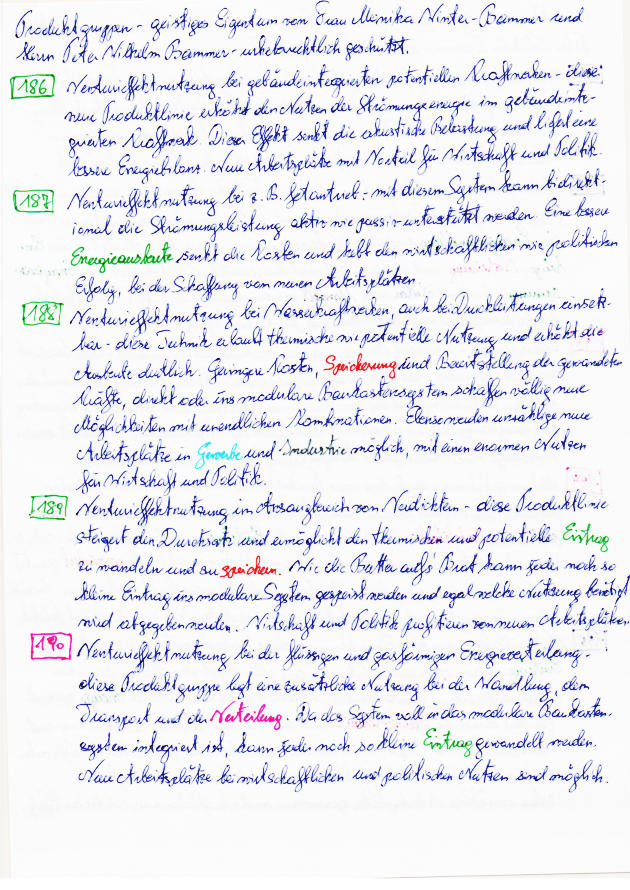 Produktgruppen - geistiges Eigentum von Frau Monika Winter-Bammer und
Herrn Peter Wilhelm Bammer - urheberrechtlich geschützt.
186 Venturieffektnutzung bei gebäudeintegrierten potentiellen Kraftwerken - diese
neue Produktlinie erhöht den Nutzen der Strömungsenergie im gebäudeinte-
grierten Kraftwerk. Dieser Effekt senkt die akustische Belastung und liefert eine
bessere Energiebilanz. Neue Arbeitsplätze mit Vorteil für Wirtschaft und Politik.
187 Venturieffektnutzung bei z. B. Jetantrieb - mit diesem System kann bidirekt-
ional die Strömungsleistung aktiv wie passiv unterstützt werden. Eine bessere
Energieausbeute senkt die Kosten und hebt den wirtschaftlichen wie politischen
Erfolg, bei der Schaffung von neuen Arbeitsplätzen.
188 Venturieffektnutzung bei Wasserkraftwerken, auch bei Druckleitungen einsetz-
bar - diese Technik erlaubt thermische wie potentielle Nutzung und erhöht die
Ausbeute deutlich. Geringere Kosten, Speicherung und Bereitstellung der gewandelten
Kräfte, direkt oder ins modulare Baukastensystem schaffen völlig neue
Möglichkeiten mit unendlichen Kombinationen. Ebenso werden unzählige neue
Arbeitsplätze in Gewerbe und Industrie möglich, mit einen enormen Nutzen
für Wirtschaft und Politik.
189 Venturieffektnutzung im Ansaugbereich von Verdichtern - diese Produktlinie
steigert den Durchsatz und ermöglicht den thermischen und potentielle Eintrag
zu wandeln und zu speichern. Wie die Butter aufs Brot kann jeder noch so
kleine Eintrag ins modulare System gespeist werden und egal welche Nutzung benötigt
wird abgegeben werden. Wirtschaft und Politik profitieren von neuen Arbeitsplätzen.
190 Venturieffektnutzung bei der flüssigen und gasförmigen Energieverteilung -
diese Produktgruppe legt eine zusätzliche Nutzung bei der Wandlung, dem
Transport und der Verteilung. Da das System voll in das modulare Baukasten-
system integriert ist, kann jeder noch so kleine Eintrag gewandelt werden.
Neue Arbeitsplätze bei wirtschaftlichen und politischen Nutzen sind möglich.